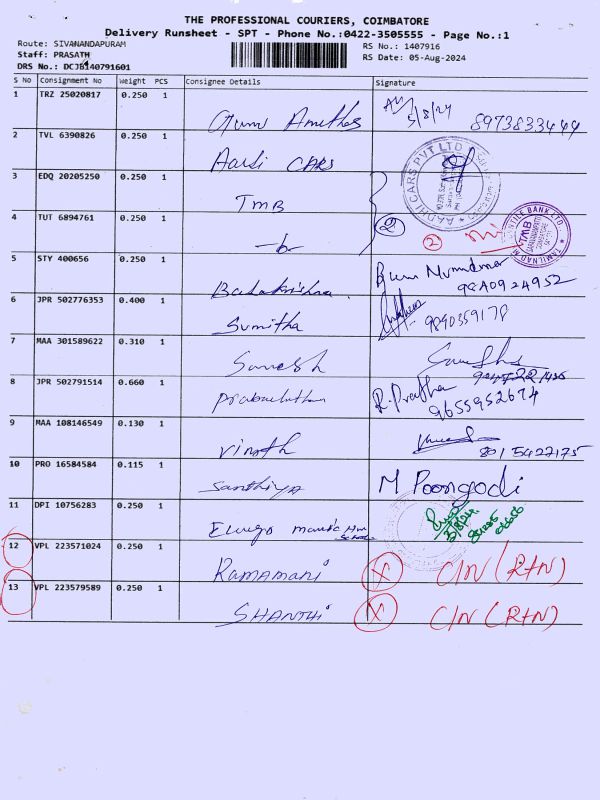 THE PROFESSIONAL COURIERS, COIMBATORE
Delivery Runsheet - SPT - Phone No.:0422-3505555 - Page No.:1
Route: SIVANANDAPURAM
RS No.: 1407916
Staff: PRASATH
RS Date: 05-Aug-2024
DRS No.: DCJB140791601
S No Consignment No Weight PCS Consignee Details Signature
1 TRZ 25020817 0.250 1 5/8/24
2 TVL 6390826 0.250 1 Aardi CARS
AADHI CARS PVT LTD
3 EDQ 20205250 0.250 1 TMB 2
4 TUT 6894761 0.250 1 2
TMB
5 STY 400656 0.250 1 Balakrishna
6 JPR 502776353 0.400 1 Sumitha 9890359178
7 MAA 301589622 0.310 1 Suresh
8 JPR 502791514 0.660 1 R. Pratha
9655952674
9 MAA 108146549 0.130 1 Vinoth 8015427175
10 PRO 16584584 0.115 1 Santhiya M Poongodi
11 DPI 10756283 0.250 1
12 VPL 223571024 0.250 1 Ramamani X C/N (RTN)
13 VPL 223579589 0.250 1 SHANTHI X C/N (RTN)